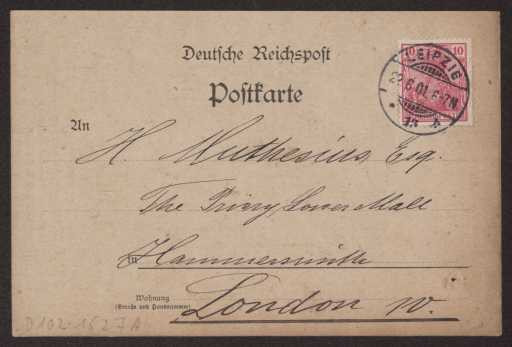 Deutsche Reichspost
Postkarte
10 10
LEIPZIG
22 6.01. 6-7N.
* 13 A
An
H. Muthesius, Esq.
The Priory, Lower Mall
in Hammersmith
Wohnung
(Straße und Hausnummer)
London W.
D102-1527A